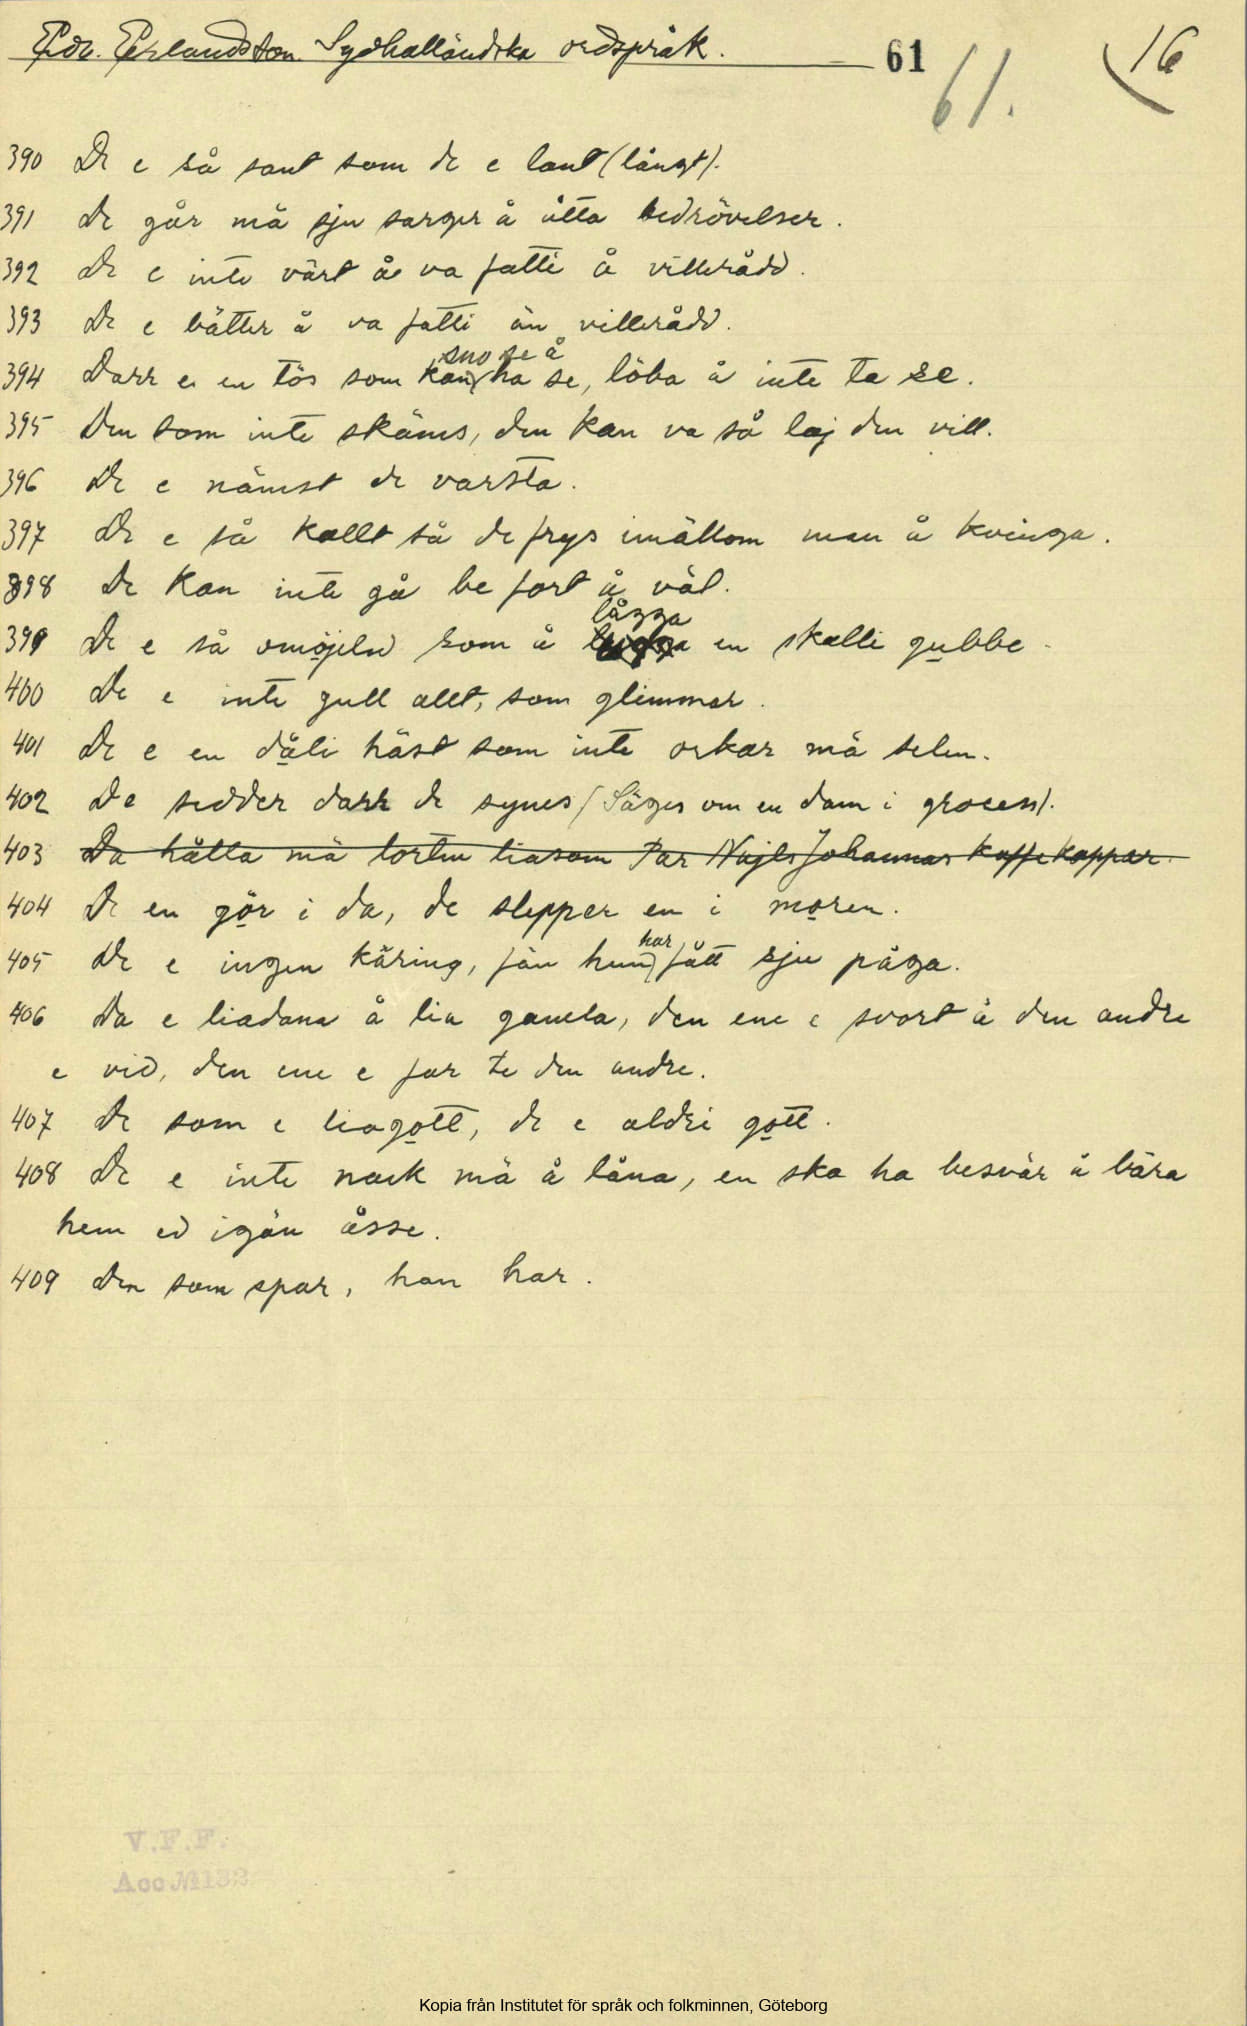 Edv. Erlandsson. Sydhalländska ordspråk. 61 61. 16
390 De e så sant som de e lant (långt).
391 De går mä sju sarger å åtta bedrövelser.
392 De e inte värt å va fatti å villerådd.
393 De e bätter å va fatti än villerådd.
394 Darr e en tös som kan sno se å ha se, löba å inte ta se.
395 Den som inte skäms, den kan va så laj den vill.
396 De e nämst de varsta.
397 De e så kallt så de frys imällom man å kvinga.
398 De kan inte gå be fort å väl.
399 De e så omöjeled som å lågga en skalli gubbe.
400 De e inte gull allt, som glimmar.
401 De e en dåli häst som inte orkar mä selen.
402 De sedder darr de synes (Säges om en dam i grocess).
403 Da hålla mä lorten liasom Par Najls Johannas kaffekoppar.
404 De en gör i da, de slepper en i moren.
405 De e ingen käring, fån hun har fått sju påga.
406 Da e liadana å lia gamla, den ene e svort å den andre
e vid, den ene e far te den andre.
407 De som e liagott, de e aldri gott.
408 De e inte nock mä å låna, en ska ha besvär å bära
hem ed igän åsse.
409 Den som spar, han har.
V.F.F.
Acc №132
Kopia från Institutet för språk och folkminnen, Göteborg